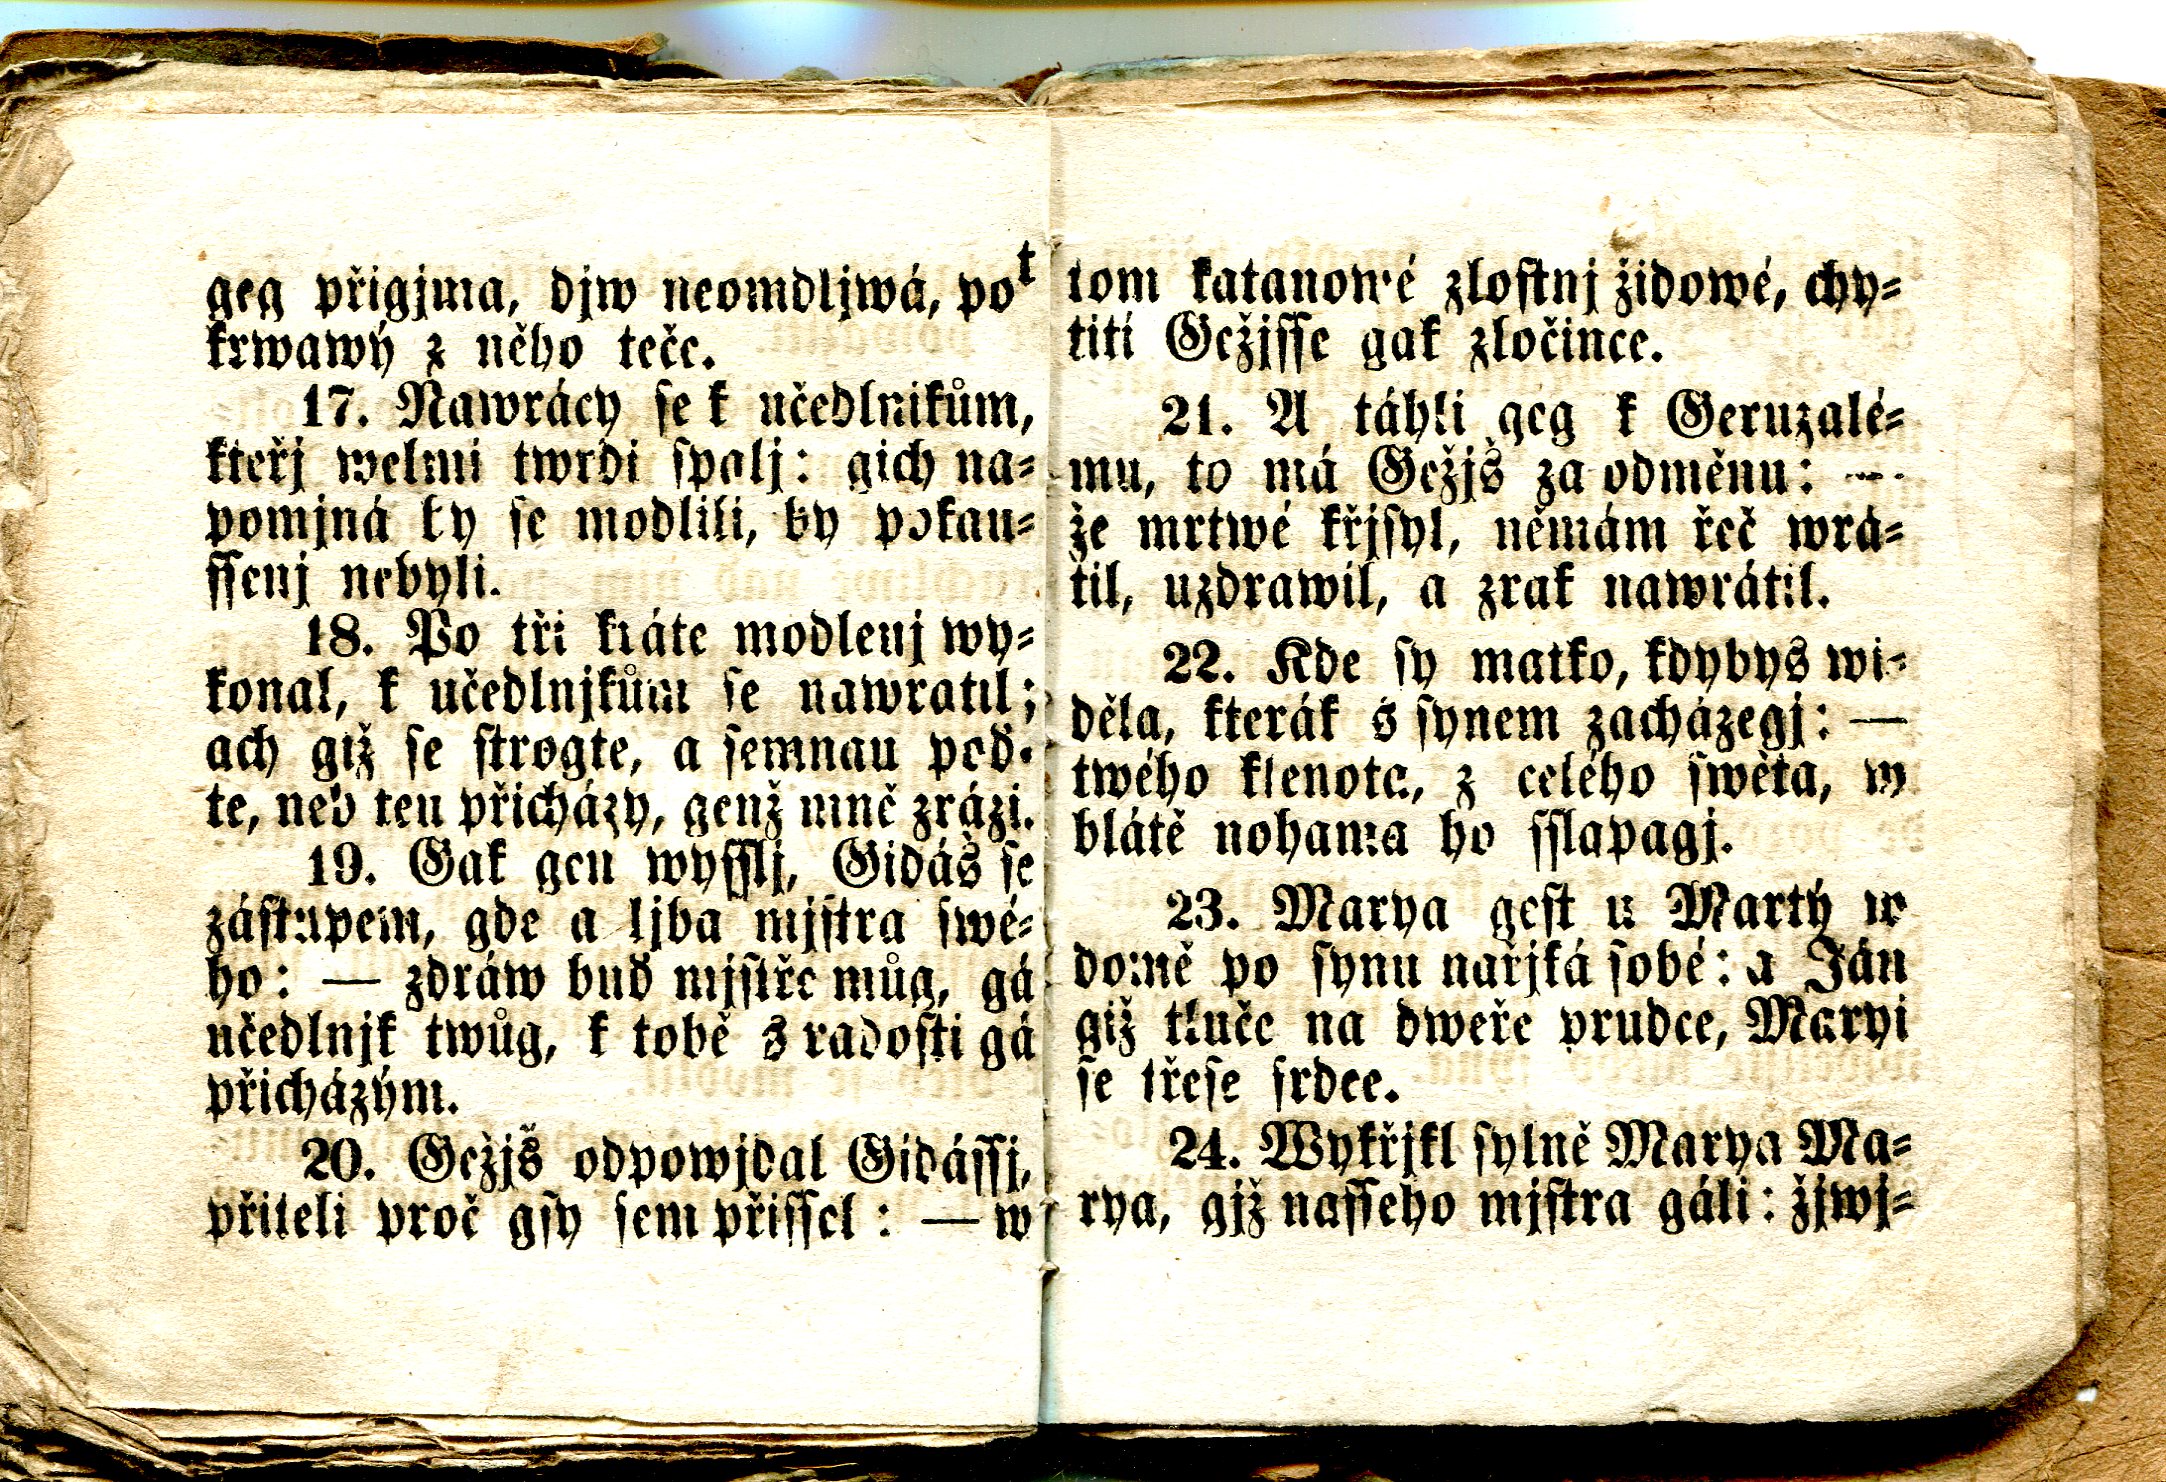 geg přigjma, djw neomdljwá, pot
krwawý z něho teče.
17. Nawrácy se k učedlnikům,
kteřj welmi twrdi spalj: gich na=
pomjná by se modlili, by pokau=
ssenj nebyli.
18. Po tři kráte modlenj wy=
konal, k učedlnjkům se nawratil;
ach giž se strogte, a semnau poď=
te, neb ten přicházy, genž mně zrázi.
19. Gak gen wysslj, Gidáš se
zástupem, gde a ljba mjstra swé=
ho: — zdráw buď mjstře můg, gá
učedlnjk twůg, k tobě s radosti gá
přicházým.
20. Gežjš odpowjdal Gidássj,
přiteli proč gsy sem přissel: — w
tom katanowé zlostnj židowé, chy=
titi Gežjsse gak zločince.
21. A táhli geg k Geruzalé=
mu, to má Gežjš za odměnu: —
že mrtwé křjsyl, němám řeč wrá=
til, uzdrawil, a zrak nawrátil.
22. Kde sy matko, kdybys wi=
děla, kterák s synem zacházegj: —
twého klenota, z celého swěta, w
blátě nohama ho sslapagj.
23. Marya gest u Martý w
domě po synu nařjká sobé: a Ján
giž tluče na dweře prudce, Maryi
se třese srdce.
24. Wykřjkl sylně Marya Ma=
rya, gjž nasseho mjstra gáli: žjwj=